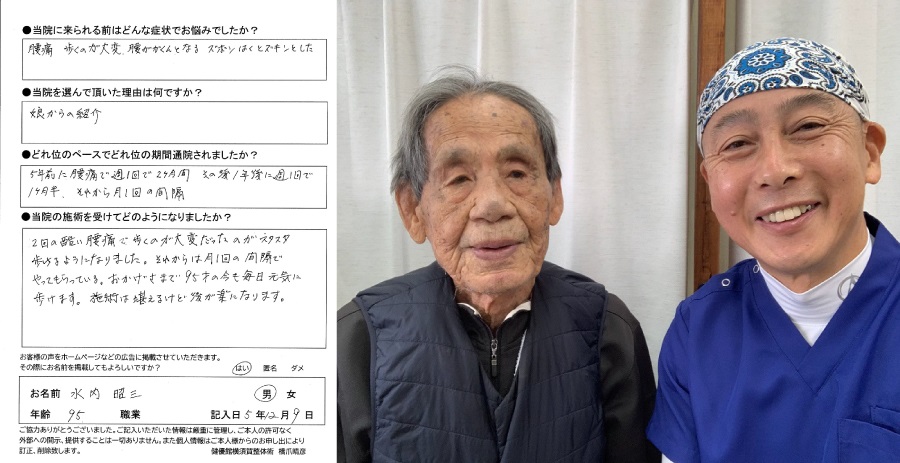 ●当院に来られる前はどんな症状でお悩みでしたか？
腰痛 歩くのが大変、腰ががくんとなる ズボンはくとズキンとした
●当院を選んで頂いた理由は何ですか？
娘からの紹介
●どれ位のペースでどれ位の期間通院されましたか？
5年前に腰痛で週1回で2ケ月間 その後1年後に週1回で
1ケ月半、それから月1回の間隔
●当院の施術を受けてどのようになりましたか？
2回の酷い腰痛で歩くのが大変だったのがスタスタ
歩けるようになりました。それからは月1回の間隔で
やってもらっている。おかげさまで95才の今も毎日元気に
歩けます。施術は堪えるけど後が楽になります。
お客様の声をホームページなどの広告に掲載させていただきます。
その際にお名前を掲載してもよろしいですか？ はい 匿名 ダメ
お名前 水内 昭三 男 女
年齢 95 職業 記入日 5年12月9日
ご協力ありがとうございました。ご記入いただいた情報は厳重に管理し、ご本人の許可なく
外部への開示、提供することは一切ありません。また個人情報はご本人様からのお申し出により
訂正、削除致します。 健優館横須賀整体術 橋爪晴彦